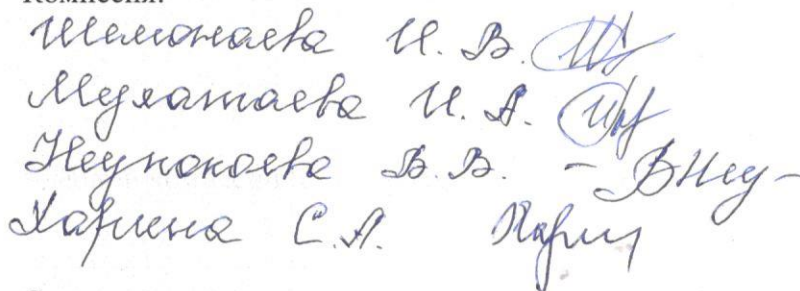 Комиссия:
Шемонаева И. В.
Мулатаева И. А.
Неупокоева В. В. –
Харина С. А.